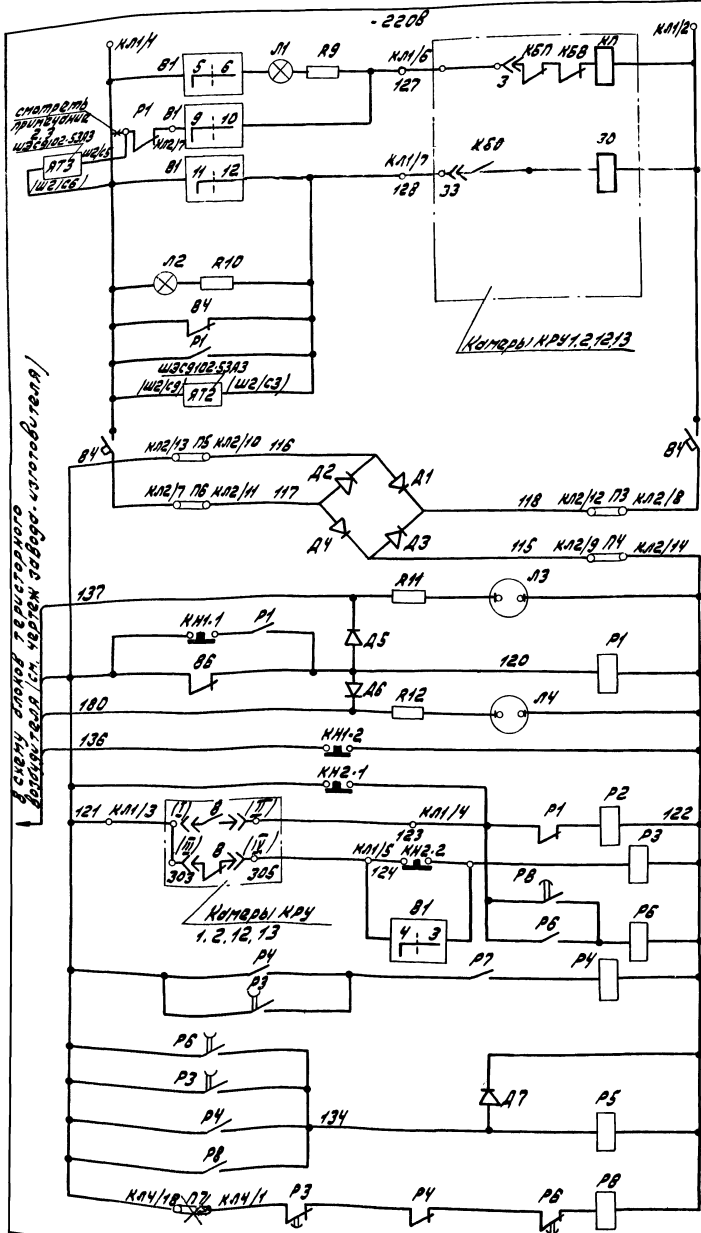 -220В
КЛ1/1
КЛ1/2
В1
5 6
Л1
R9
КЛ1/6
127
3
КБП
КБВ
КП
смотреть
примечание
2,3
ШЭС9102-53А3
Р1
КЛ2/7
В1
9 10
ЯТ3
Ш2/С5
(Ш2/С6)
В1
11 12
КЛ1/7
128
33
КБО
ЭО
Л2
R10
В4
Р1
ШЭС9102-53А3
(Ш2/С9)
ЯТ2
(Ш2/С3)
Камеры КРУ 1,2,12,13
В4
В4
КЛ2/13
П5
КЛ2/10
116
КЛ2/7
П6
КЛ2/11
117
Д2
Д1
Д4
Д3
118
КЛ2/12
П3
КЛ2/8
115
КЛ2/9
П4
КЛ2/14
в схему блоков тиристорного
возбудителя (см. чертеж завода-изготовителя)
137
R11
Л3
КН1-1
Р1
Д5
В6
120
Р1
Д6
180
R12
Л4
136
КН1-2
КН2-1
121
КЛ1/3
(I)
В
(II)
КЛ1/4
123
Р1
Р2
122
(III)
303
В
(IV)
305
КЛ1/5
124
КН2-2
Р3
Камеры КРУ
1,2,12,13
В1
4 3
Р8
Р6
Р6
Р4
Р3
Р7
Р4
Р6
Р3
Р4
134
Р8
Д7
Р5
КЛ4/18
П7
КЛ4/1
Р3
Р4
Р6
Р8